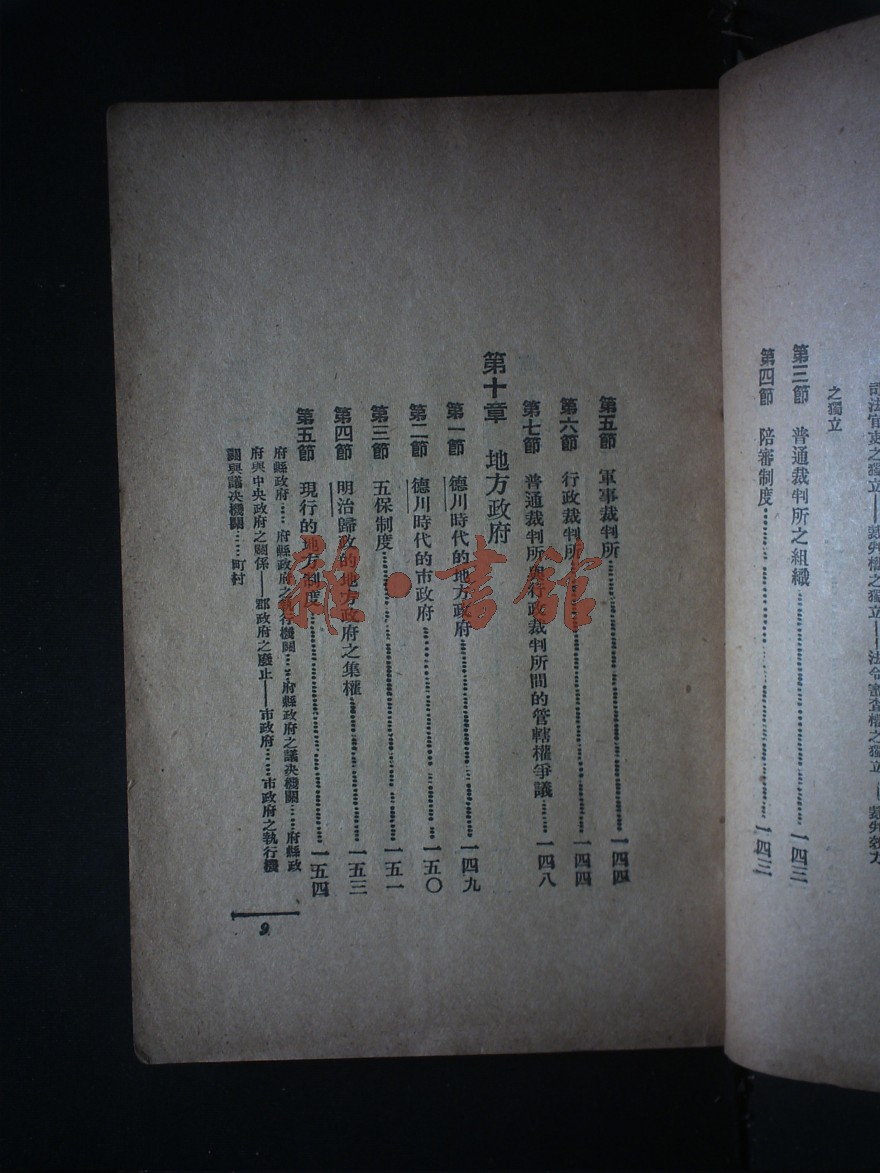 司法官吏之獨立——裁判權之獨立——法令審查權之獨立——裁判效力
之獨立
第三節 普通裁判所之組織……一四三
第四節 陪審制度……一四三
第五節 軍事裁判所……一四四
第六節 行政裁判所……一四四
第七節 普通裁判所與行政裁判所間的管轄權爭議……一四八
第十章 地方政府
第一節 德川時代的地方政府……一四九
第二節 德川時代的市政府……一五〇
第三節 五保制度……一五一
第四節 明治歸政的地方政府之集權……一五三
第五節 現行的地方制度……一五四
府縣政府……府縣政府之執行機關……府縣政府之議決機關……府縣政
府與中央政府之關係——郡政府之廢止——市政府……市政府之執行機
關與議決機關……町村
9
雜·書館